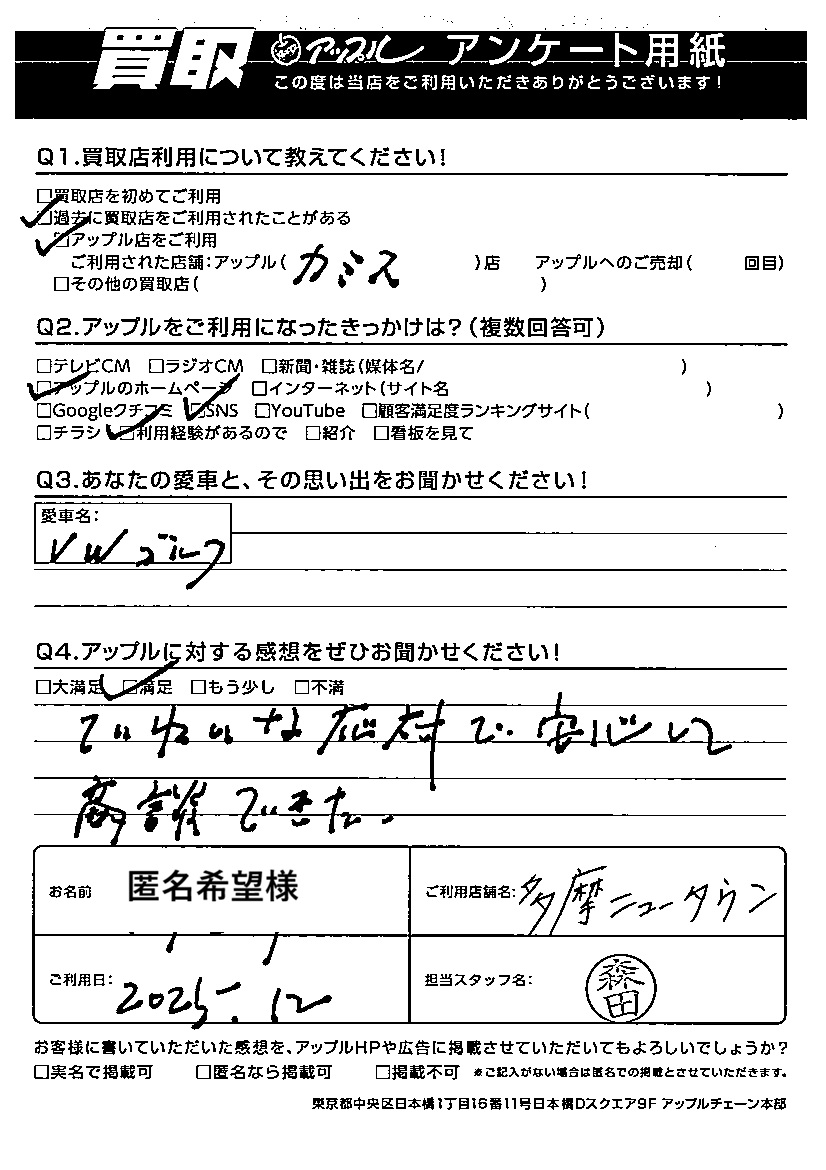 買取 アップル アンケート用紙
この度は当店をご利用いただきありがとうございます!
Q1.買取店利用について教えてください!
□買取店を初めてご利用
□過去に買取店をご利用されたことがある
□アップル店をご利用
ご利用された店舗:アップル( カミス )店 アップルへのご売却( 回目)
□その他の買取店( )
Q2.アップルをご利用になったきっかけは?(複数回答可)
□テレビCM □ラジオCM □新聞・雑誌(媒体名/ )
□アップルのホームページ □インターネット(サイト名 )
□Googleクチコミ □SNS □YouTube □顧客満足度ランキングサイト( )
□チラシ □利用経験があるので □紹介 □看板を見て
Q3.あなたの愛車と、その思い出をお聞かせください!
愛車名:
VW ゴルフ
Q4.アップルに対する感想をぜひお聞かせください!
□大満足 □満足 □もう少し □不満
ていねいな応対で安心して
商談できた.
お名前 匿名希望様 ご利用店舗名: 多摩ニュータウン
ご利用日: 2025.12 担当スタッフ名: 森田
お客様に書いていただいた感想を、アップルHPや広告に掲載させていただいてもよろしいでしょうか?
□実名で掲載可 □匿名なら掲載可 □掲載不可 ※ご記入がない場合は匿名での掲載とさせていただきます。
東京都中央区日本橋1丁目16番11号日本橋Dスクエア9F アップルチェーン本部